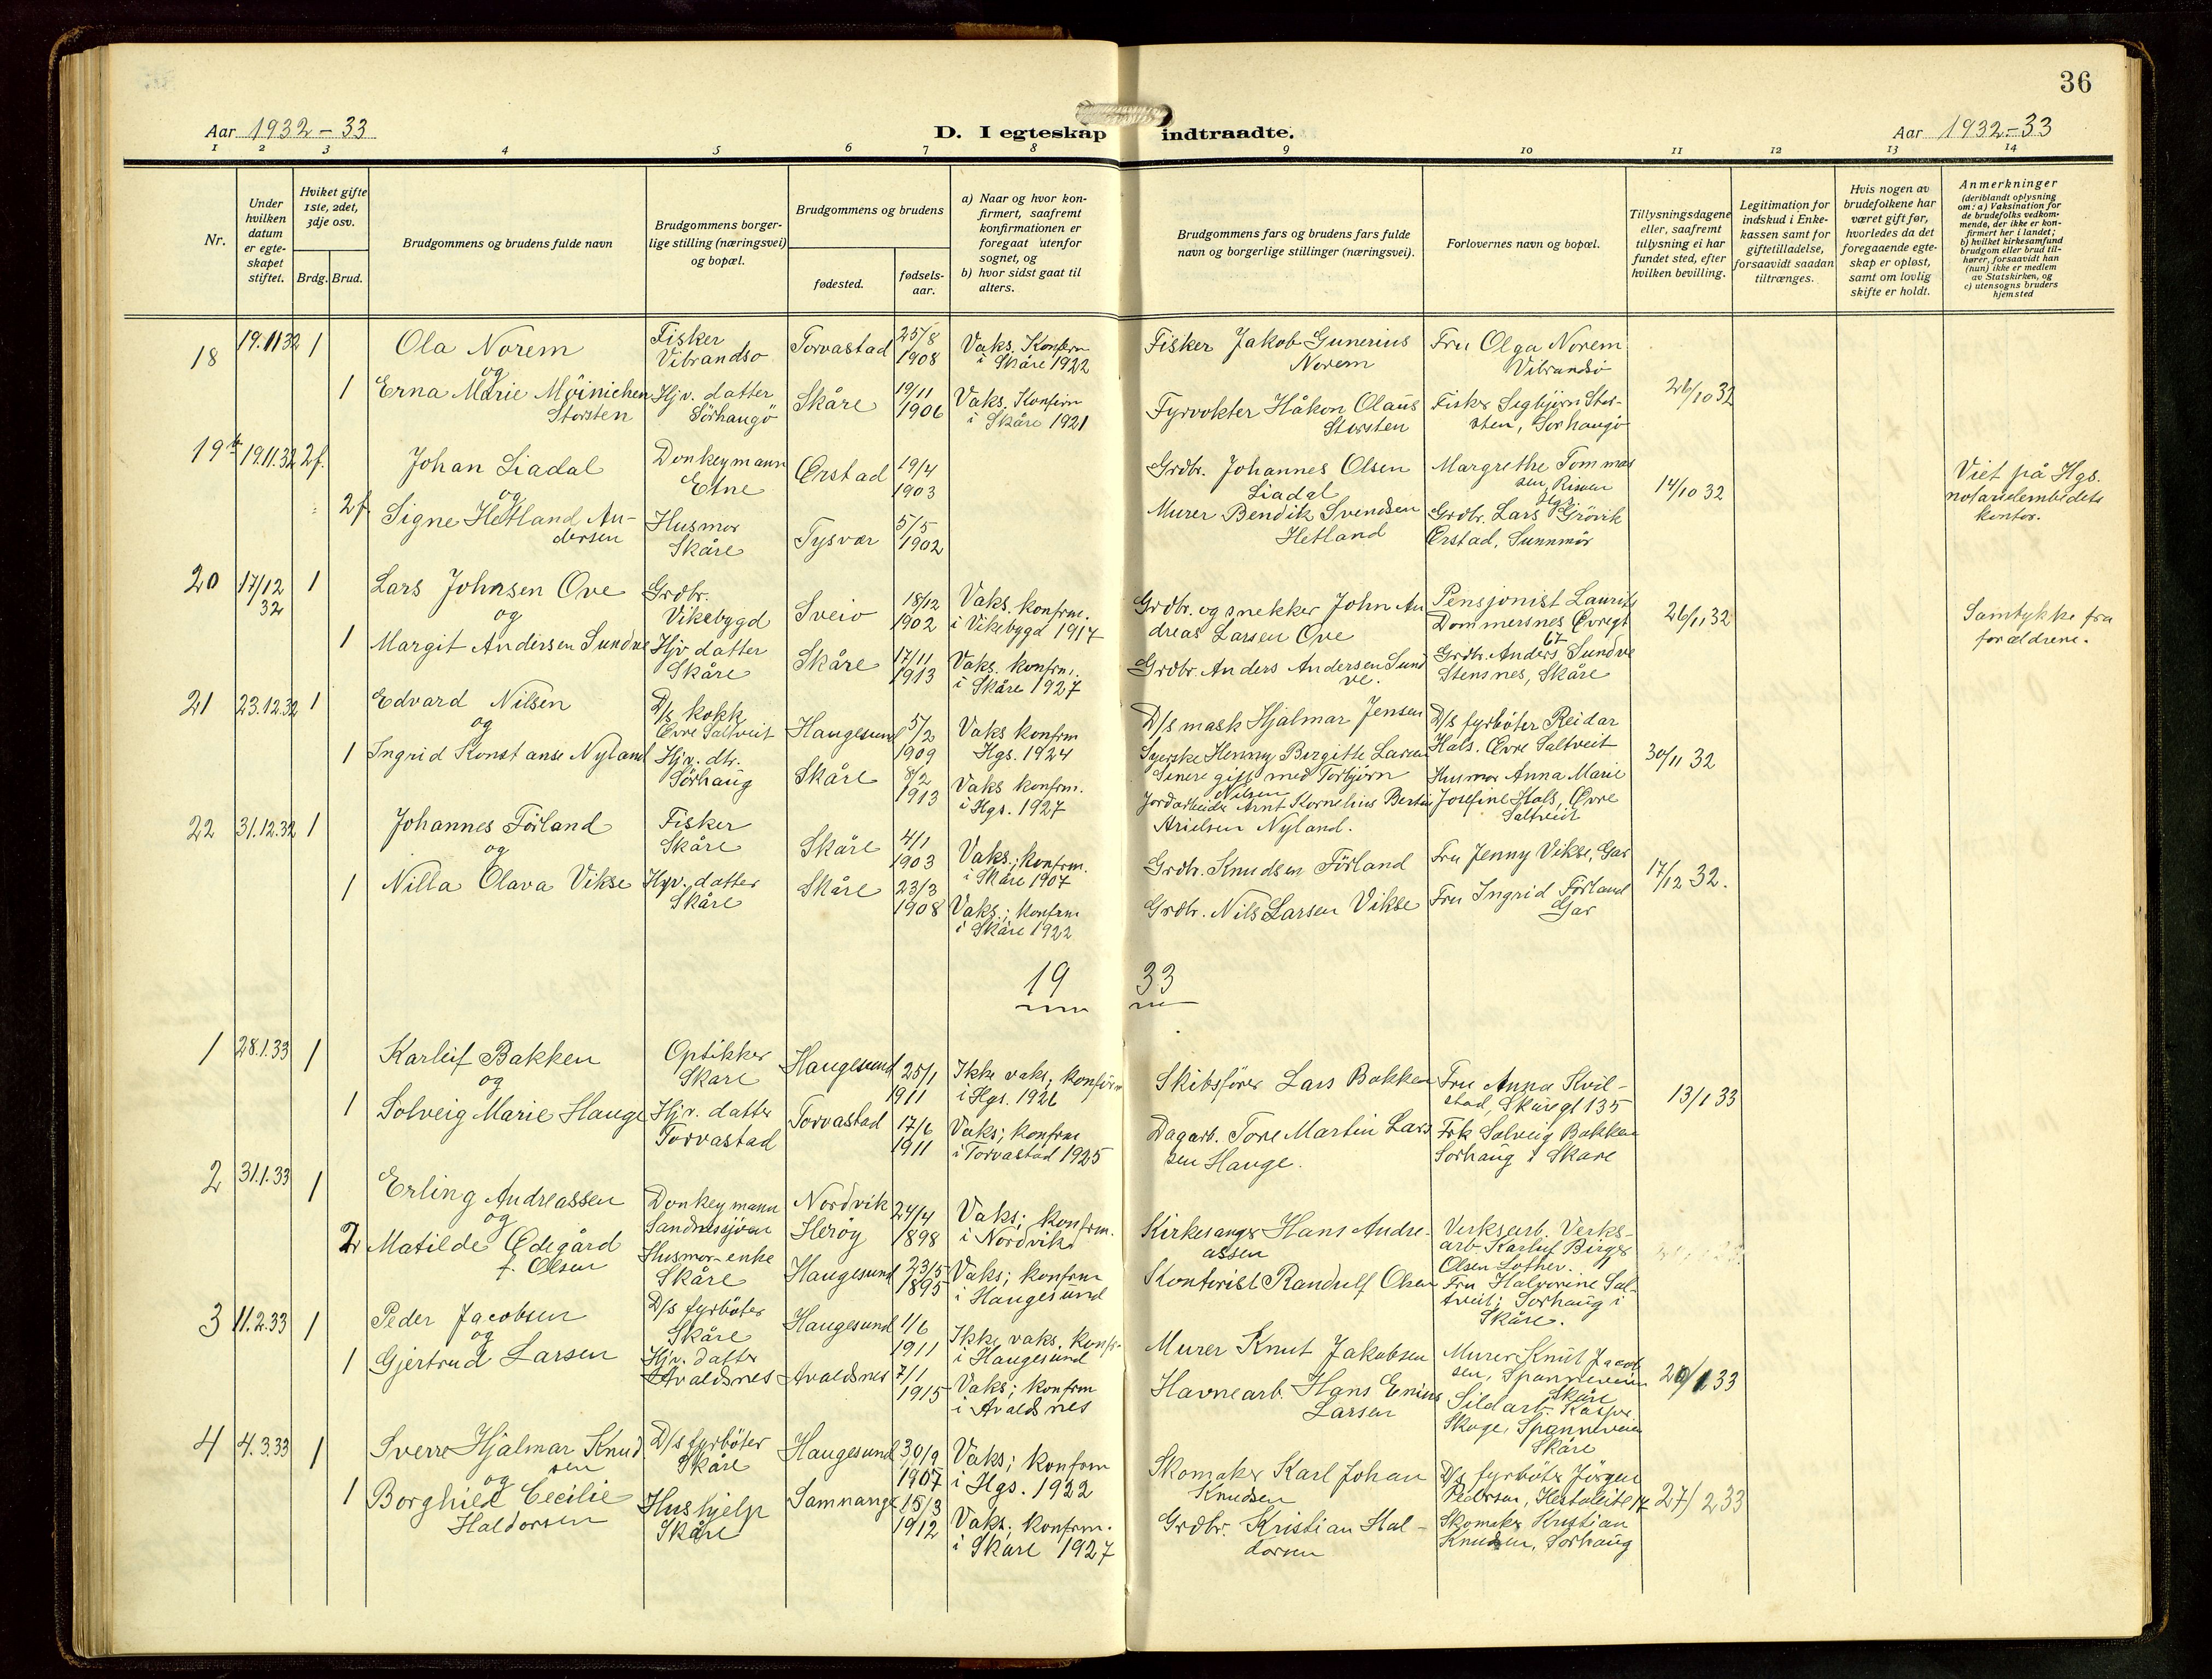 36
Aar 1932-33
D. I egteskap indtraadte.
Aar 1932-33
1 2 3 4 5 6 7 8 9 10 11 12 13 14
Nr.
Under
hvilken
datum
er egte-
skapet
stiftet.
Hvilket gifte
1ste, 2det,
3dje osv.
Brdg. Brud.
Brudgommens og brudens fulde navn
Brudgommens borger-
lige stilling (næringsvei)
og bopæl.
Brudgommens og brudens
fødested.
fødsels-
aar.
a) Naar og hvor kon-
firmert, saafremt
konfirmationen er
foregaat utenfor
sognet, og
b) hvor sidst gaat til
alters.
Brudgommens fars og brudens fars fulde
navn og borgerlige stillinger (næringsvei).
Forlovernes navn og bopæl.
Tillysningsdagene
eller, saafremt
tillysning ei har
fundet sted, efter
hvilken bevilling.
Legitimation for
indskud i Enke-
kassen samt for
giftetilladelse,
forsaavidt saadan
tiltrænges.
Hvis nogen av
brudefolkene har
været gift før,
hvorledes da det
foregaaende egte-
skap er opløst,
samt om lovlig
skifte er holdt.
Anmerkninger
(deriblandt oplysning
om: a) Vaksination for
de brudefolks vedkom-
mende, der ikke er kon-
firmert her i landet;
b) hvilket kirkesamfund
brudgom eller brud til-
hører, forsaavidt han
(hun) ikke er medlem
av Statskirken, og
c) utensogns bruders
hjemsted
18 19.11 32 1
Ola Norem
og
1 Erna Marie Möinichen
Storsten
Fisker
Vibrandsö
Hjv. datter
Sörhaugö
Torvastad 25/8
1908
Skåre 19/11
1906
Vaks. Konfirm
i Skåre 1922
Vaks. Konfirm
i Skåre 1921
Fisker Jakob Gunerius
Norem
Fyrvokter Håkon Olaus
Storsten
Fru Olga Norem
Vibrandsö
Fisker Segbjörn Stor-
sten, Sorhaugö
26/10 32
19 19.11.32 2f.
Johan Liadal
og
2f Signe Hetland An-
dersen
Donkeymann
Etne
Husmor
Skåre
Ørstad 19/4
1903
Tysvær 5/5
1902
Grdbr. Johannes Olsen
Liadal
Murer Bendik Svendsen
Hetland
Margrethe Tommas
sen, Risøen
Hgs.
Grdbr. Lars Grövik
Ørstad, Sunnmör
14/10 32
Viet på Hgs.
notarialembedets
kontor.
20 17/12
32 1
Lars Johnsen Ove
og
1 Margit Andersen Sundve
Grdbr.
Vikebygd
Hjv datter
Skåre
Sveio 18/12
1902
Skåre 17/11
1913
Vaks. konfrm.
i Vikebygd 1917
Vaks. konfrm.
i Skåre 1927
Grdbr. og snekker John An
dreas Larsen Ove
Grdbr. Anders Andersen Sund
ve.
Pensjonist Laurits
Dommersnes Øvregt
67
Grdbr. Anders Sundve
Stensnes, Skåre
26/11 32
Samtykke fra
forældrene.
21 23.12.32 1
Edvard Nilsen
og
1 Ingrid Konstanse Nyland
D/s kokk
Øvre Saltveit
Hjv. dtr.
Sörhaug
Haugesund 5/2
1909
Skåre 8/2
1913
Vaks konfrm
Hgs. 1924
Vaks konfrm.
i Hgs. 1927
D/s mask Hjalmar Jensen
Syerske Henny Birgitte Larsen
Senere gift med Torbjörn
Nilsen
Jordarbeider Arnt Kornelius Bertin
Arielsen Nyland.
D/s fyrböter Reidar
Hals. Øvre Saltveit
Husmor Anna Marie
Josefine Hals, Øvre
Saltveit
30/11 32
22 31.12.32 1
Johannes Förland
og
1 Nilla Olava Vikse
Fisker
Skåre
Hjv. datter
Skåre
Skåre 4/1
1903
Skåre 23/3
1908
Vaks.; konfrm.
i Skåre 1907
Vaks.; konfrm
i Skåre 1922
Grdbr. Knudsen Förland
Grdbr. Nils Larsen Vikse
Fru Jenny Vikse, Gar
Fru Ingrid Förland
Gar
17/12 32.
19 33
1 28.1.33 1
Karleif Bakken
og
1 Solveig Marie Hauge
Optikker
Skare
Hjv. datter
Torvastad
Haugesund 25/1
1911
Torvastad 17/6
1911
Ikke vaks; konfirm
i Hgs. 1926
Vaks; konfrm
i Torvastad 1925
Skibsförer Lars Bakken
Dagarb. Tore Martin Lars
sen Hauge.
Fru Anna Kvil-
stad, Skåregt 135
Frk Solveig Bakken
Sorhaug i Skare
13/1 33
2 31.1.33 1
Erling Andreassen
og
2 Matilde Ødegård
f. Olsen
Donkeymann
Sandnessjöen
Husmor-enke
Skåre
Nordvik
Heröy 24/4
1898
Haugesund 23/5
1895
Vaks; konfrm.
i Nordvik
Vaks; konfrm
i Haugesund
Kirkesanger Hans Andre-
assen
Kontorist Randulf Olsen
Verksarb. Verks-
arb. Karleif Birger
Olsen Lother.
Fru Halvorine Sal-
tveit; Sorhaug i
Skåre.
3 11.2.33 1
Peder Jacobsen
og
1 Gjertrud Larsen
D/s fyrböter
Skåre
Hjv. datter
Avaldsnes
Haugesund 1/6
1911
Avaldsnes 7/1
1915
Ikke vaks. konfr.
i Haugesund
Vaks; konfrm
i Avaldsnes
Murer Knut Jakobsen
Havnearb. Hans Enius
Larsen
Murer Knut Jacob
sen, Spanneveien
Skåre
Sildarb. Kaspr.
Skoge, Spanneveien
Skåre
20/1 33
4 4.3.33 1
Sverre Hjalmar Knud
sen
og
1 Borghild Cecilie
Haldorsen
D/s fyrböter
Skåre
Hushjelp
Skåre
Haugesund 30/9
1907
Samnanger 15/3
1912
Vaks; konfrm
i Hgs. 1922
Vaks; konfrm.
i Skåre 1927
Skomaker Karl Johan
Knudsen
Grdbr. Kristian Hal-
dorsen
D/s fyrböter Jörgen
Pedersen, Hestaleite 14
Skomaker Kristian
Knudsen, Sorhaug
27/2 33